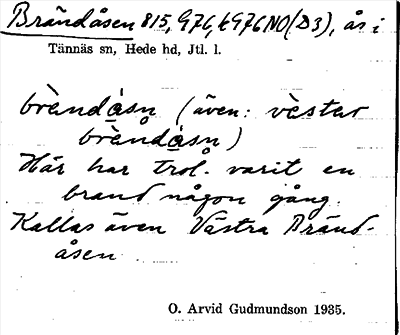 Brändåsen 815, G76, EG76NO(D3), ås i
Tännäs sn, Hede hd, Jtl. l.
brèndåsn (även: vèster
brèndåsn)
Här har trol. varit en
brand någon gång.
Kallas även Västra Bränd-
åsen
O. Arvid Gudmundson 1935.